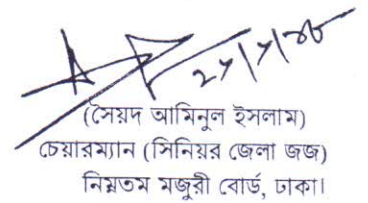 (সৈয়দ আমিনুল ইসলাম)
চেয়ারম্যান (সিনিয়র জেলা জজ)
নিম্নতম মজুরী বোর্ড, ঢাকা।